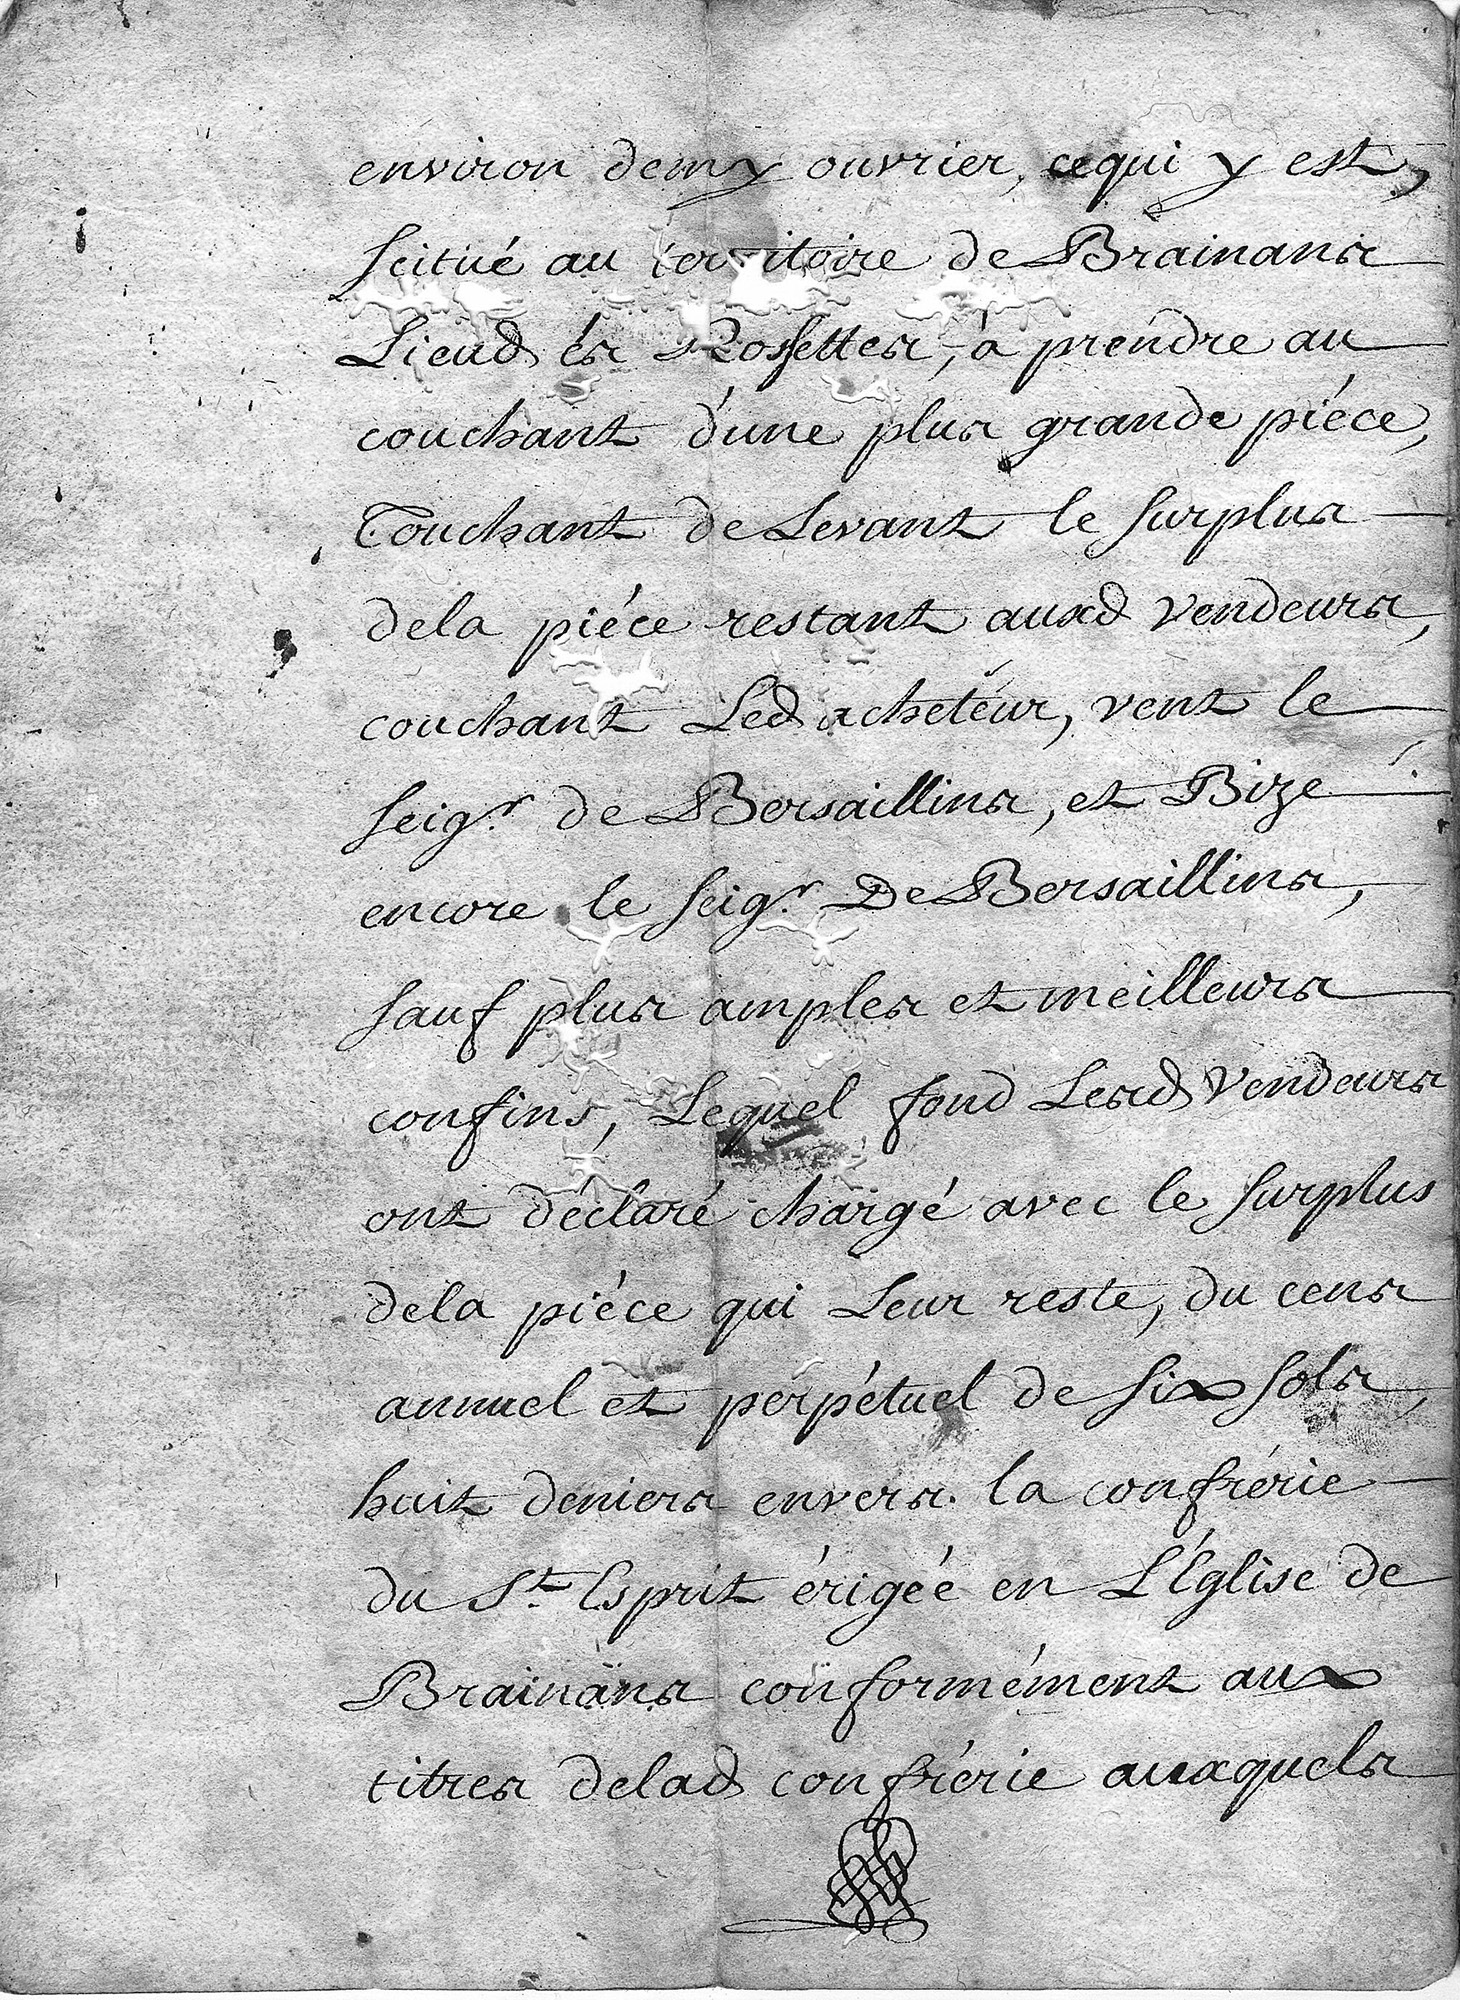 environ demy ouvrier, cequi y est,
scitué au territoire de Brainans
Lieud és Rossettes, à prendre au
couchant d'une plus grande piéce,
Touchant de Levant le surplus
dela piéce restant auxd vendeurs,
couchant Led acheteur, vent le
seigr. de Bersaillins, et Bize
encore le seigr. De Bersaillins,
sauf plus amples et meilleurs
confins, Lequel fond Lesd vendeurs
ont déclaré chargé avec le surplus
dela piéce qui Leur reste, du cens
annuel et perpétuel de six sols,
huit deniers envers la confrérie
du St. Esprit érigée en L'Église de
Brainans conformément aux
titres delad confrérie auxquels